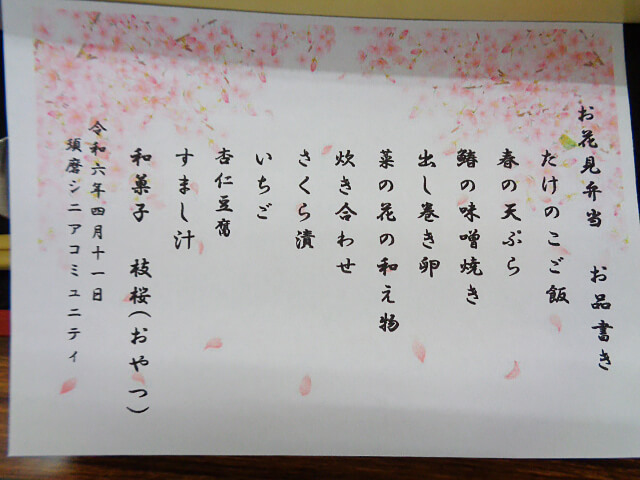 お花見弁当　お品書き
たけのこご飯
春の天ぷら
鰆の味噌焼き
出し巻き卵
菜の花の和え物
炊き合わせ
さくら漬
いちご
杏仁豆腐
すまし汁
和菓子　枝桜(おやつ)
令和六年四月十一日
須磨シニアコミュニティ